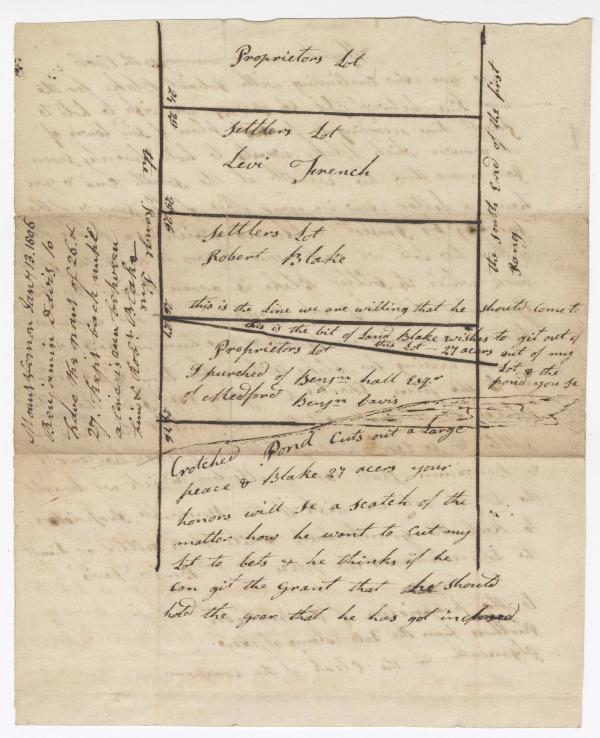 Proprietors Lot
24
25
Settlers Lot
Levi French
25
26
Settlers Lot
Robert Blake
this is the Line we are willing that he should come to
26
27
this is the bit of Land Blake wishes to git out of
this Lot — 27 acers out of my
Lot & the
pond you se
Proprietors Lot
I purched of Benjn hall Esqr
of Medford Benjn Davis
Crotched Pond Cuts out a Large
peace & Blake 27 acers your
honors will se a scatch of the
matter how he want to Cut my
Lot to bets & he thinks if he
can git the grant that he should
hold the goar that he has got inclosed
the Range Line
the south End of the first
Rang
Mount Vernon Jany 13. 1806
Benjamin Davis to
have the nans of 26. &
27. kept back until
a line is run between
him & Robt. Blake